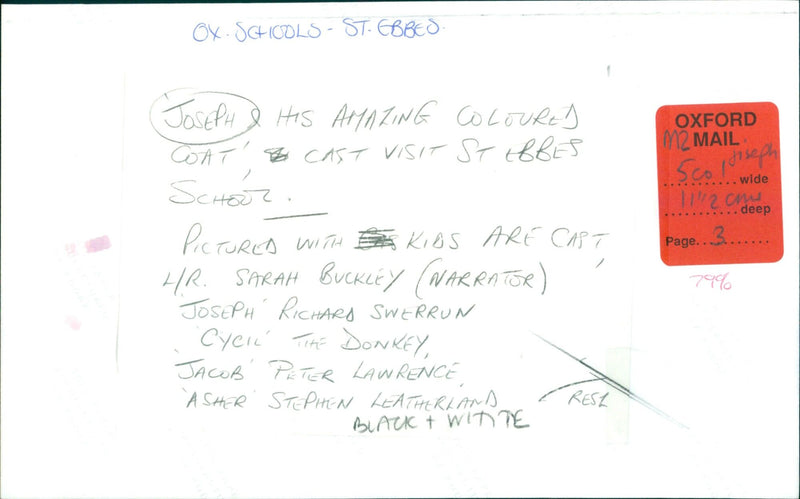 OX. SCHOOLS - ST. EBBES.
'JOSEPH & HIS AMAZING COLOURED
COAT', CAST VISIT ST EBBES
SCHOOL.
PICTURED WITH KIDS ARE CAST,
L/R. SARAH BUCKLEY (NARRATOR)
'JOSEPH' RICHARD SWERRUN
'CYCIL' THE DONKEY,
'JACOB' PETER LAWRENCE,
'ASHER' STEPHEN LEATHERLAND
BLACK + WHITE
RESL
OXFORD
MAIL
M2
Jiseph
5 col
wide
11 1/2 cms
deep
Page 3
79%